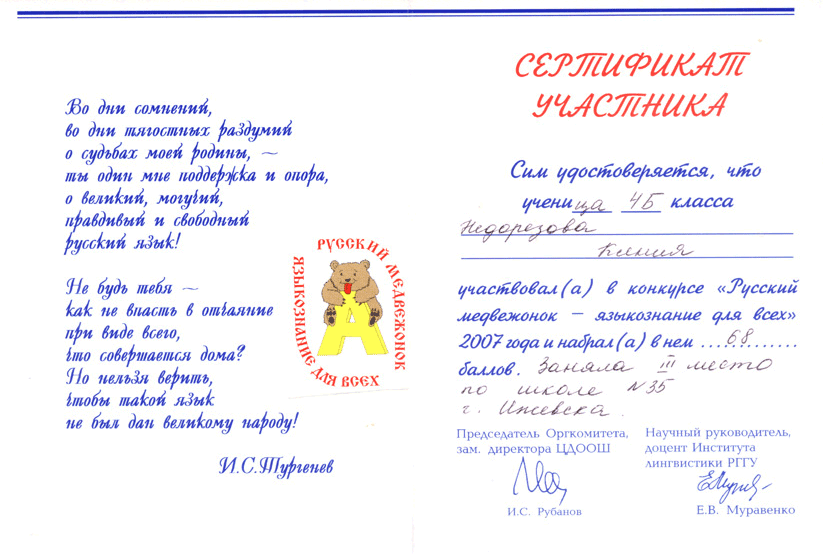 Во дни сомнений,
во дни тягостных раздумий
о судьбах моей родины, —
ты один мне поддержка и опора,
о великий, могучий,
правдивый и свободный
русский язык!
Не будь тебя —
как не впасть в отчаяние
при виде всего,
что совершается дома?
Но нельзя верить,
чтобы такой язык
не был дан великому народу!
И.С.Тургенев
РУССКИЙ МЕДВЕЖОНОК
ЯЗЫКОЗНАНИЕ ДЛЯ ВСЕХ
А
СЕРТИФИКАТ
УЧАСТНИКА
Сим удостоверяется, что
ученица 4Б класса
Недорезова
Ксения
участвовал(а) в конкурсе «Русский
медвежонок — языкознание для всех»
2007 года и набрал(а) в нем ...68.......
баллов. Заняла III место
по школе N35
г. Ижевска.
Председатель Оргкомитета,
зам. директора ЦДООШ
И.С. Рубанов
Научный руководитель,
доцент Института
лингвистики РГГУ
Е.В. Муравенко